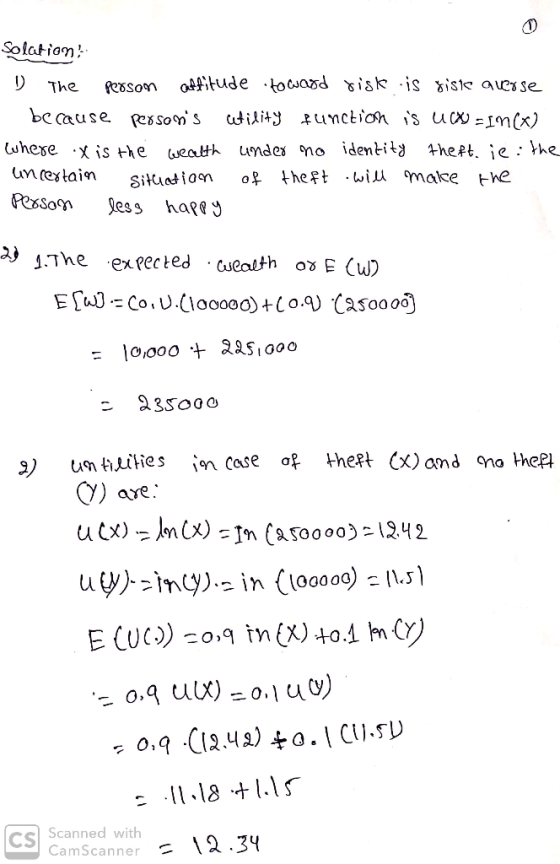 ①
Solation:-
1) The person attitude toward risk is risk averse
because person's utility function is u(x) = In(x)
where x is the wealth under no identity theft. ie: the
uncertain situation of theft will make the
Person less happy
2) 1. The expected wealth or E (W)
E[W] = (0.1).(100000) + (0.9) (250000)
= 10,000 + 225,000
= 235000
2) untilities in case of theft (X) and no theft
(Y) are:
u(X) = ln(X) = In (250000) = 12.42
u(y) = in(y). = in (100000) = 11.51
E (U(.)) = 0.9 in (X) + 0.1 ln (Y)
= 0.9 U(X) = 0.1 u(y)
= 0.9 .(12.42) + 0.1 (11.51)
= 11.18 + 1.15
= 12.34
CS Scanned with
CamScanner